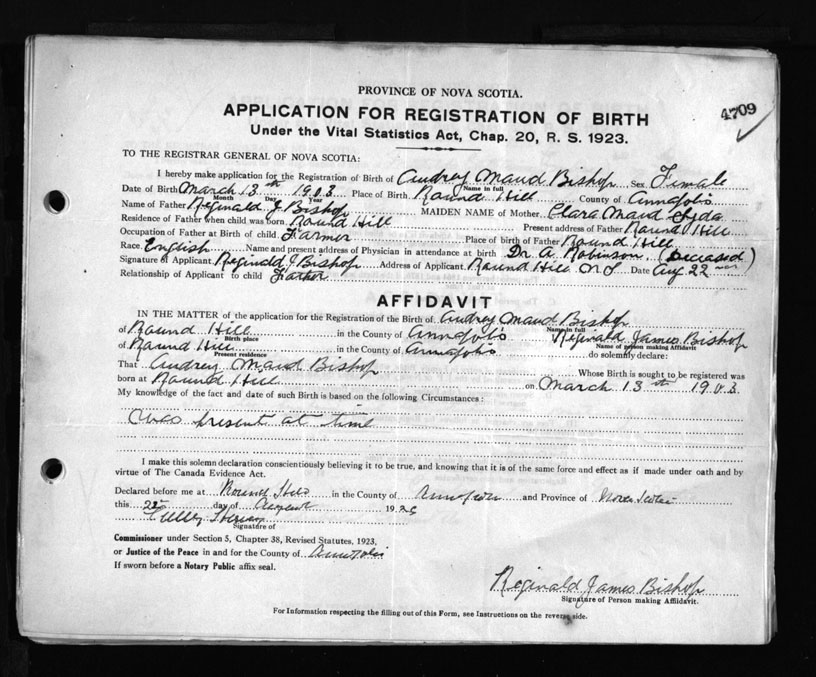 PROVINCE OF NOVA SCOTIA.
4709
APPLICATION FOR REGISTRATION OF BIRTH
Under the Vital Statistics Act, Chap. 20, R. S. 1923.
TO THE REGISTRAR GENERAL OF NOVA SCOTIA:
I hereby make application for the Registration of Birth of Audrey Maud Bishop Sex Female
Name in full
Date of Birth March 13th 1903 Place of Birth Round Hill County of Annapolis
Month Day Year
Name of Father Reginald J Bishop MAIDEN NAME of Mother Clara Maud
Residence of Father when child was born Round Hill Present address of Father Round Hill
Occupation of Father at Birth of child Farmer Place of birth of Father Round Hill
Race English Name and present address of Physician in attendance at birth Dr. A. Robinson (Deceased)
Signature of Applicant Reginald J Bishop Address of Applicant Round Hill N S Date Aug 22
Relationship of Applicant to child Father
AFFIDAVIT
IN THE MATTER of the application for the Registration of the Birth of Audrey Maud Bishop
Name in full
of Round Hill in the County of Annapolis Reginald James Bishop
Birth place Name of person making Affidavit
of Round Hill in the County of Annapolis do solemnly declare:
Present residence
That Audrey Maud Bishop Whose Birth is sought to be registered was
born at Round Hill on March 13th 1903
My knowledge of the fact and date of such Birth is based on the following Circumstances:
Was present at time
I make this solemn declaration conscientiously believing it to be true, and knowing that it is of the same force and effect as if made under oath and by
virtue of The Canada Evidence Act.
Declared before me at Round Hill in the County of Annapolis and Province of Nova Scotia
this 22 day of August 1926
Signature of
Commissioner under Section 5, Chapter 38, Revised Statutes, 1923,
or Justice of the Peace in and for the County of Annapolis
If sworn before a Notary Public affix seal.
Reginald James Bishop
Signature of Person making Affidavit.
For Information respecting the filling out of this Form, see Instructions on the reverse side.